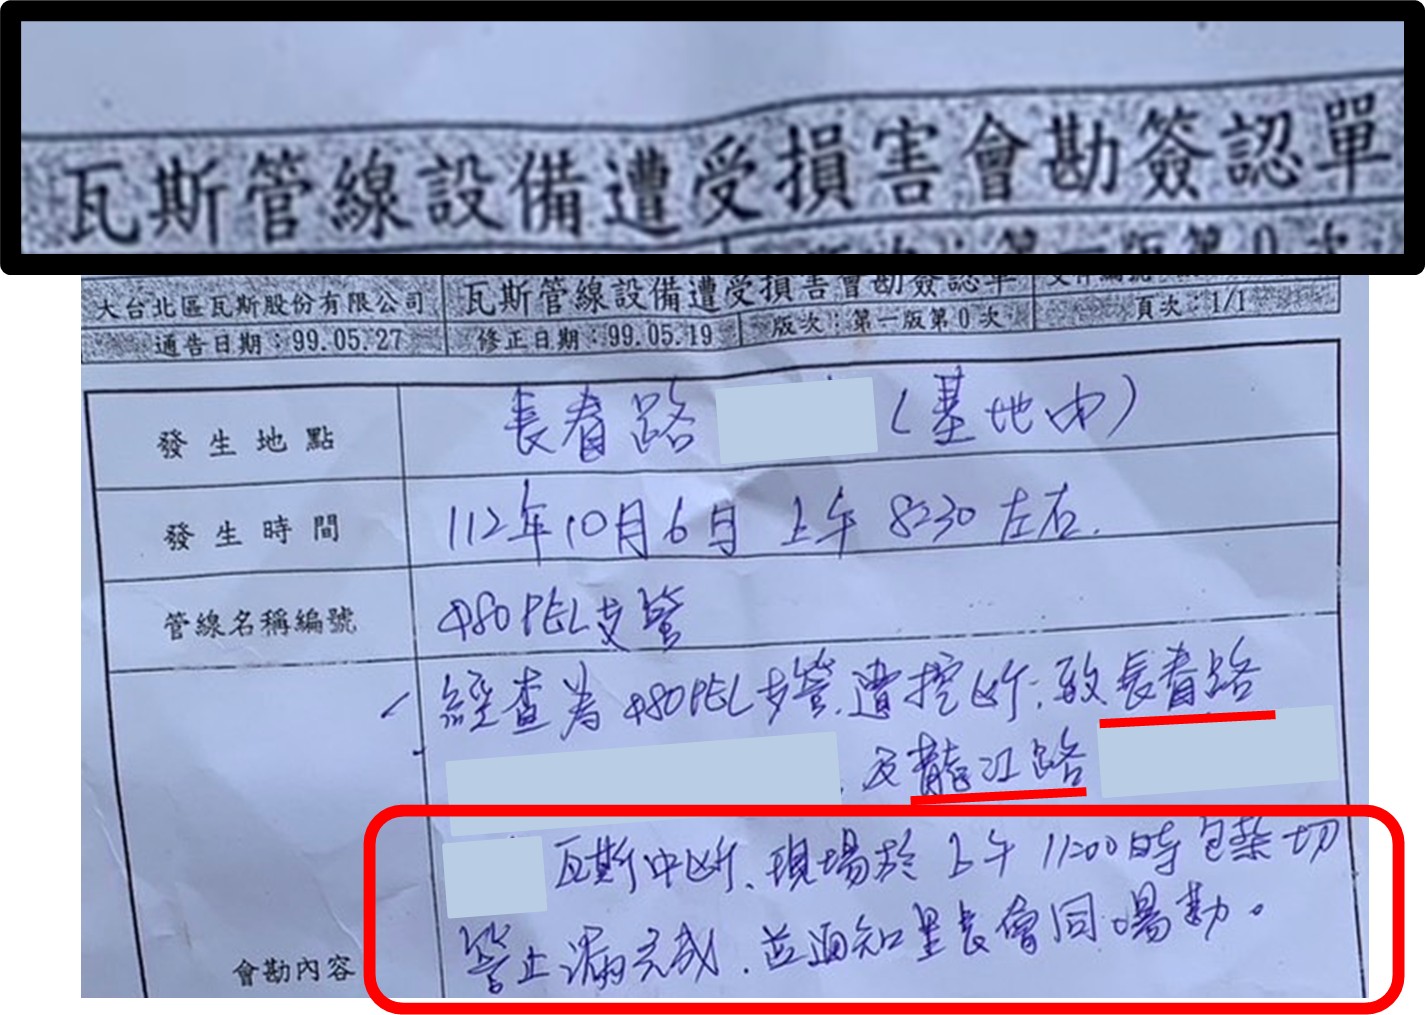 瓦斯管線設備遭受損害會勘簽認單
版次：第一版第0次
大台北區瓦斯股份有限公司 瓦斯管線設備遭受損害會勘簽認單 文件編號
通告日期：99.05.27 修正日期：99.05.19 版次：第一版第0次 頁次：1/1
發生地點 長春路 （基地中）
發生時間 112年10月6日 上午 8:30 左右.
管線名稱編號 φ80PEL支管
經查為φ80PEL支管.遭挖斷.致長春路
及龍江路
瓦斯中斷、現場於上午11:00時包紮切
管止漏完成.並通知里長會同場勘。
會勘內容